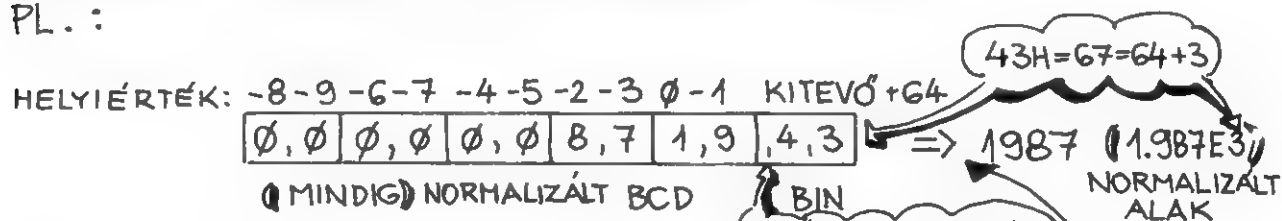 PL. :
43H=67=64+3
HELYIÉRTÉK: -8-9 -6-7 -4-5 -2-3 Ø-1 KITEVŐ+64
Ø,Ø Ø,Ø Ø,Ø 8,7 1,9 ,4,3 => 1987 (1.987E3)
(MINDIG) NORMALIZÁLT BCD BIN NORMALIZÁLT
ALAK